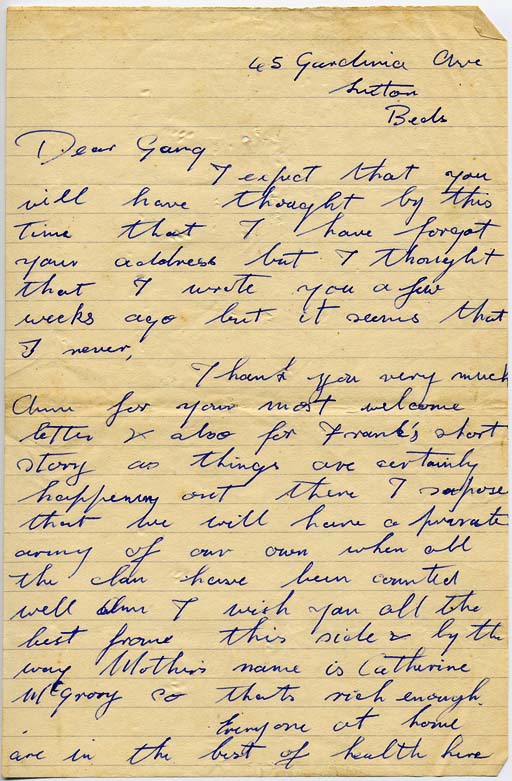 45 Gardinia Ave
Sutton
Beds
Dear Gang
I expect that you
will have thought by this
time that I have forgot
your address but I thought
that I wrote you a few
weeks ago but it seems that
I never,
Thank you very much
Ann for your most welcome
letter & also for Frank's short
story as things are certainly
happening out there I supose
that we will have a private
army of our own when all
the clan have been counted
well Ann I wish you all the
best frome this side & by the
way Mothers name is Catherine
McGrory so thats rich enough.
Everyone at home
are in the best of health here